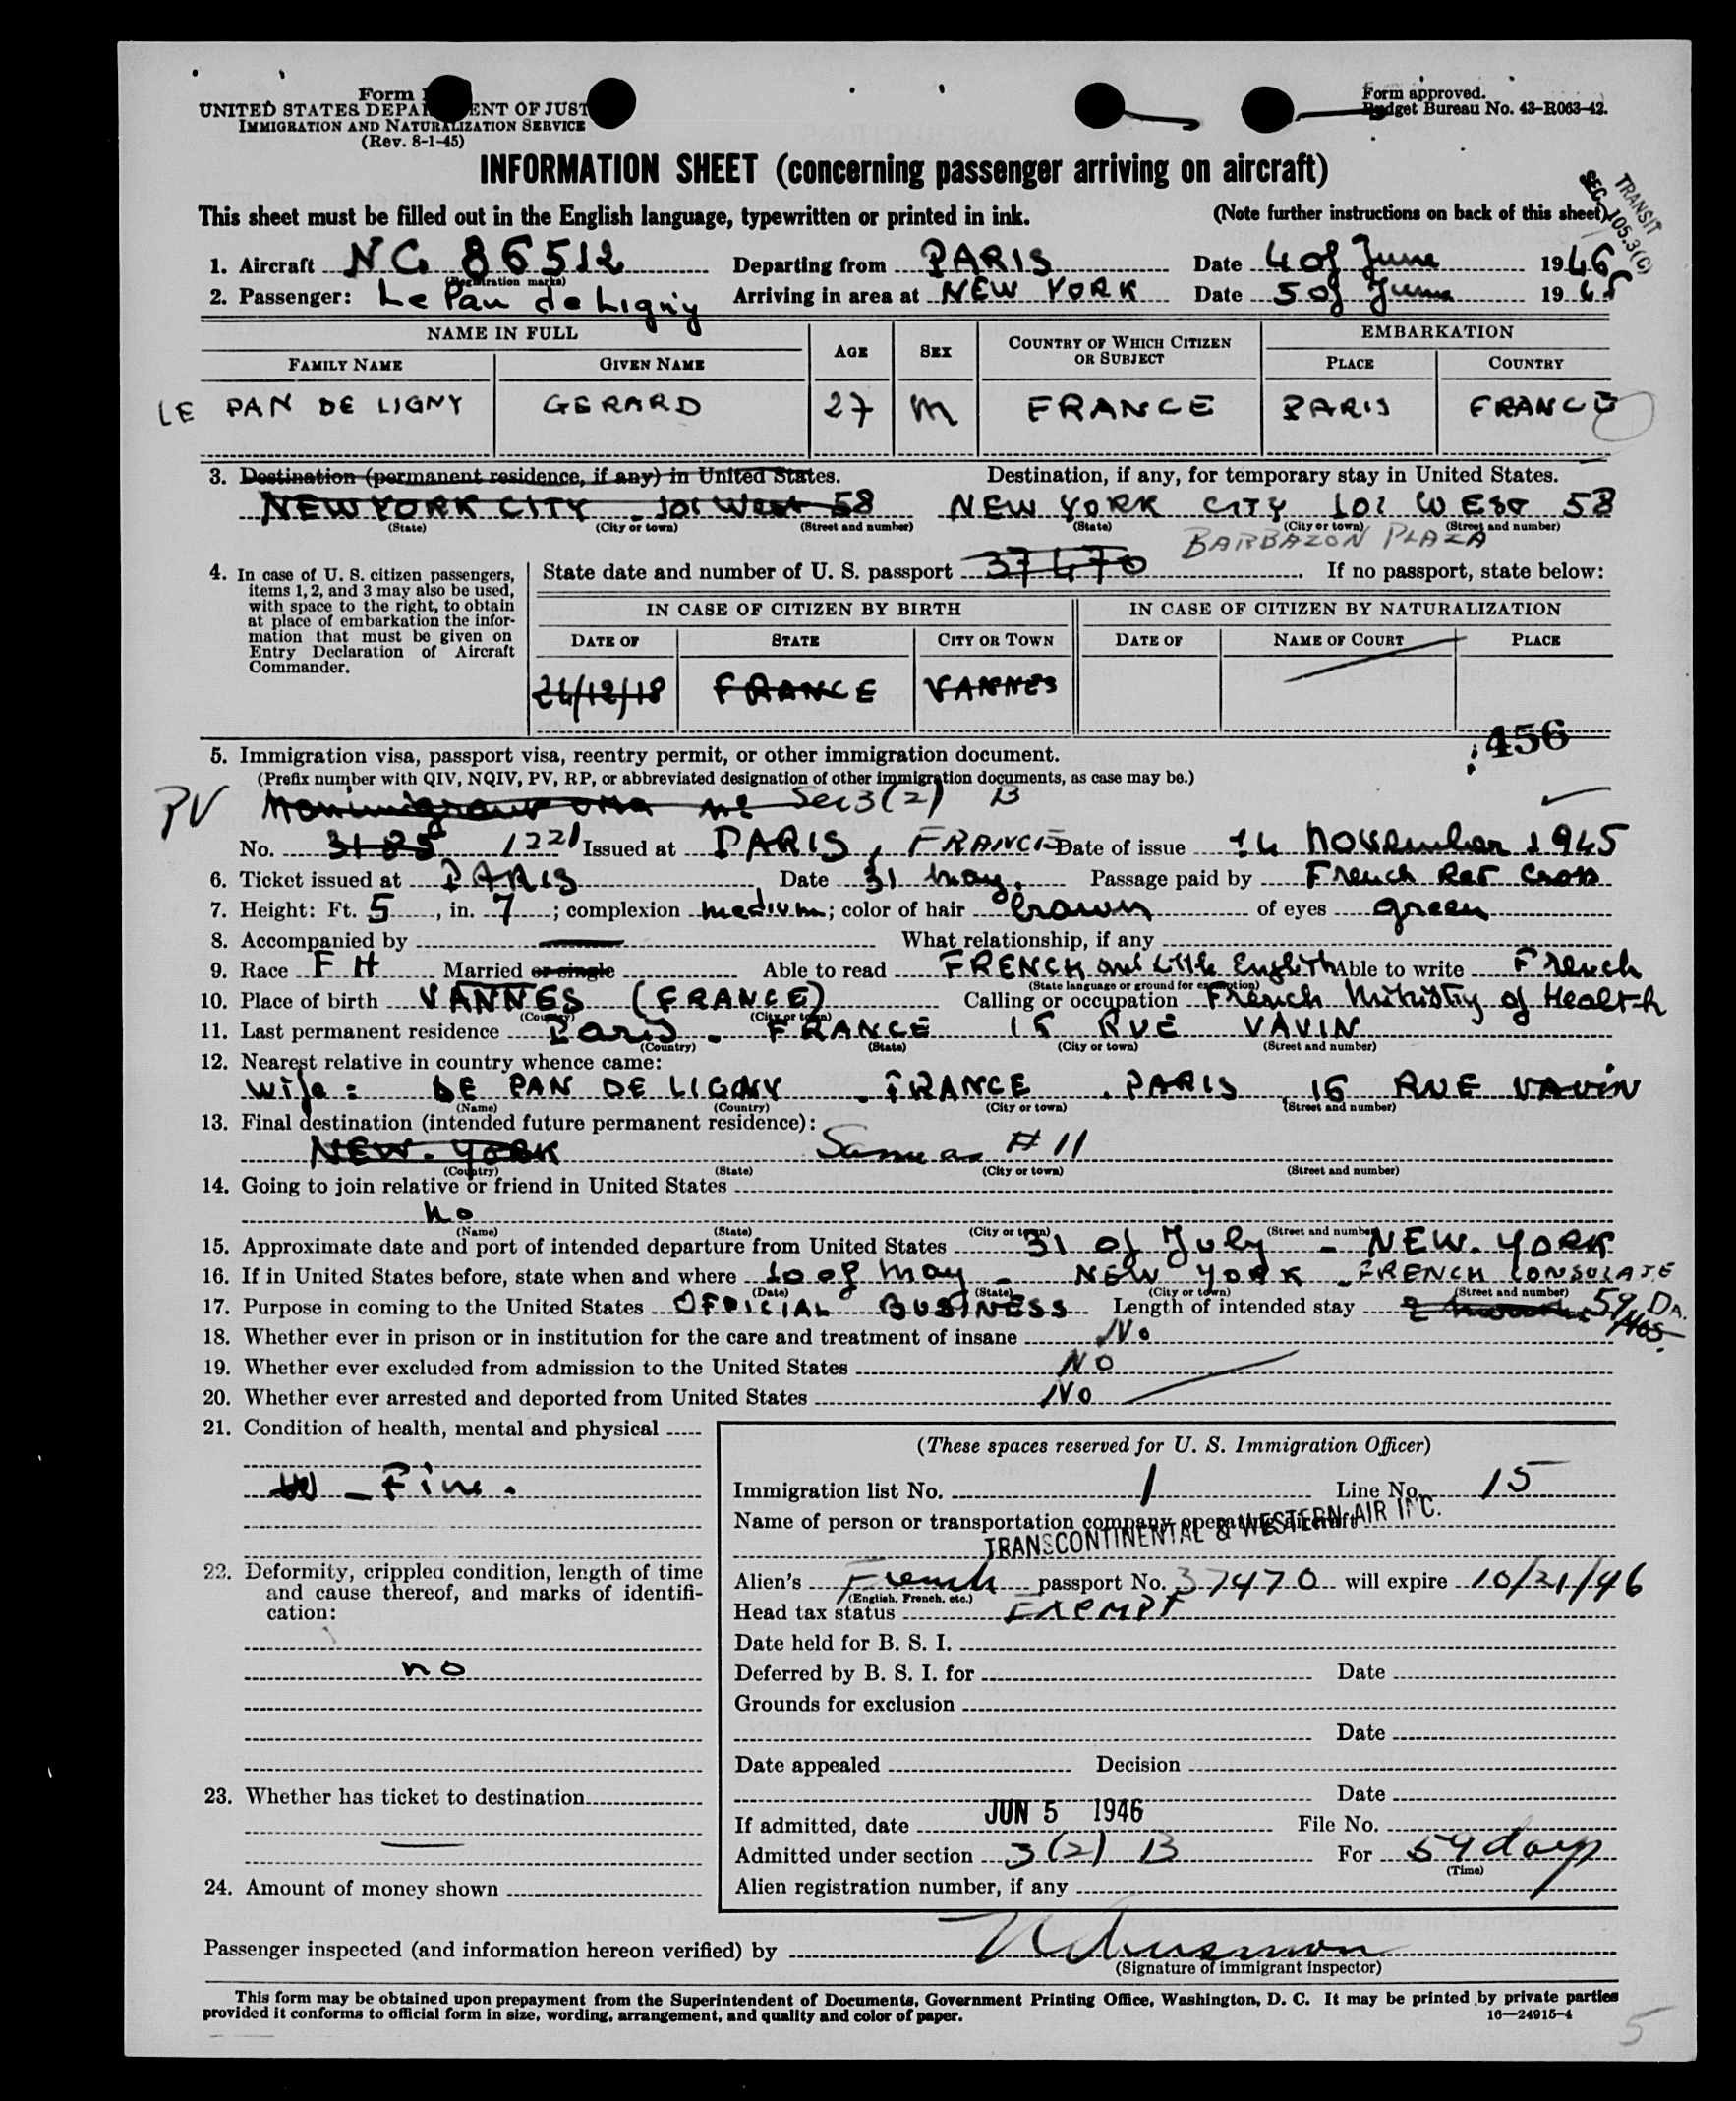 Form
UNITED STATES DEPA ENT OF JUST
IMMIGRATION AND NATURALIZATION SERVICE
(Rev. 8-1-45)
Form approved.
Budget Bureau No. 43-R063-42.
INFORMATION SHEET (concerning passenger arriving on aircraft)
TRANSIT
SEC. 105.3(C)
This sheet must be filled out in the English language, typewritten or printed in ink. (Note further instructions on back of this sheet)
1. Aircraft NC 86512 Departing from PARIS Date 4 of June 1946
(Registration marks)
2. Passenger: Le Pan de Ligny Arriving in area at NEW YORK Date 5 of June 19
NAME IN FULL AGE SEX COUNTRY OF WHICH CITIZEN OR SUBJECT EMBARKATION
FAMILY NAME GIVEN NAME PLACE COUNTRY
LE PAN DE LIGNY GERARD 27 M FRANCE PARIS FRANCE
3. Destination (permanent residence, if any) in United States. Destination, if any, for temporary stay in United States.
NEW YORK CITY - 101 West 58 NEW YORK CITY 101 WEST 58
(State) (City or town) (Street and number) (State) (City or town) (Street and number)
BARBAZON PLAZA
4. In case of U. S. citizen passengers, items 1, 2, and 3 may also be used, with space to the right, to obtain at place of embarkation the information that must be given on Entry Declaration of Aircraft Commander.
State date and number of U. S. passport 37470 If no passport, state below:
IN CASE OF CITIZEN BY BIRTH IN CASE OF CITIZEN BY NATURALIZATION
DATE OF STATE CITY OR TOWN DATE OF NAME OF COURT PLACE
24/12/18 FRANCE VANNES
456
5. Immigration visa, passport visa, reentry permit, or other immigration document.
(Prefix number with QIV, NQIV, PV, RP, or abbreviated designation of other immigration documents, as case may be.)
PV Nonimmigrant visa Sec 3(2) B
No. 3185 1221 Issued at PARIS, FRANCE Date of issue 14 November 1945
6. Ticket issued at PARIS Date 31 May. Passage paid by French Red Cross
7. Height: Ft. 5, in. 7; complexion medium; color of hair brown of eyes green
8. Accompanied by What relationship, if any
9. Race F H Married or single Able to read FRENCH and little English Able to write French
(State language or ground for exemption)
10. Place of birth VANNES (FRANCE) Calling or occupation French Ministry of Health
(Country) (City or town)
11. Last permanent residence Paris - FRANCE 16 RUE VAVIN
(Country) (State) (City or town) (Street and number)
12. Nearest relative in country whence came:
Wife: LE PAN DE LIGNY - FRANCE . PARIS 16 RUE VAVIN
(Name) (Country) (City or town) (Street and number)
13. Final destination (intended future permanent residence):
NEW. YORK Same as # 11
(Country) (State) (City or town) (Street and number)
14. Going to join relative or friend in United States
no
(Name) (State) (City or town) (Street and number)
15. Approximate date and port of intended departure from United States 31 of July - NEW. YORK
16. If in United States before, state when and where 10 of May - NEW YORK - FRENCH CONSULATE
(Date) (State) (City or town) (Street and number)
17. Purpose in coming to the United States OFFICIAL BUSINESS Length of intended stay 59 DA.
18. Whether ever in prison or in institution for the care and treatment of insane No
19. Whether ever excluded from admission to the United States NO
20. Whether ever arrested and deported from United States NO
21. Condition of health, mental and physical
- Fine.
22. Deformity, crippled condition, length of time and cause thereof, and marks of identification:
no
23. Whether has ticket to destination
24. Amount of money shown
(These spaces reserved for U. S. Immigration Officer)
Immigration list No. 1 Line No. 15
Name of person or transportation company operating aircraft
TRANSCONTINENTAL & WESTERN AIR INC.
Alien's French passport No. 37470 will expire 10/31/46
(English, French, etc.)
Head tax status EXEMPT
Date held for B. S. I.
Deferred by B. S. I. for Date
Grounds for exclusion
Date
Date appealed Decision
Date
If admitted, date JUN 5 1946 File No.
Admitted under section 3(2) B For 59 days
(Time)
Alien registration number, if any
Passenger inspected (and information hereon verified) by
(Signature of immigrant inspector)
This form may be obtained upon prepayment from the Superintendent of Documents, Government Printing Office, Washington, D. C. It may be printed by private parties
provided it conforms to official form in size, wording, arrangement, and quality and color of paper. 16—24915-4
5